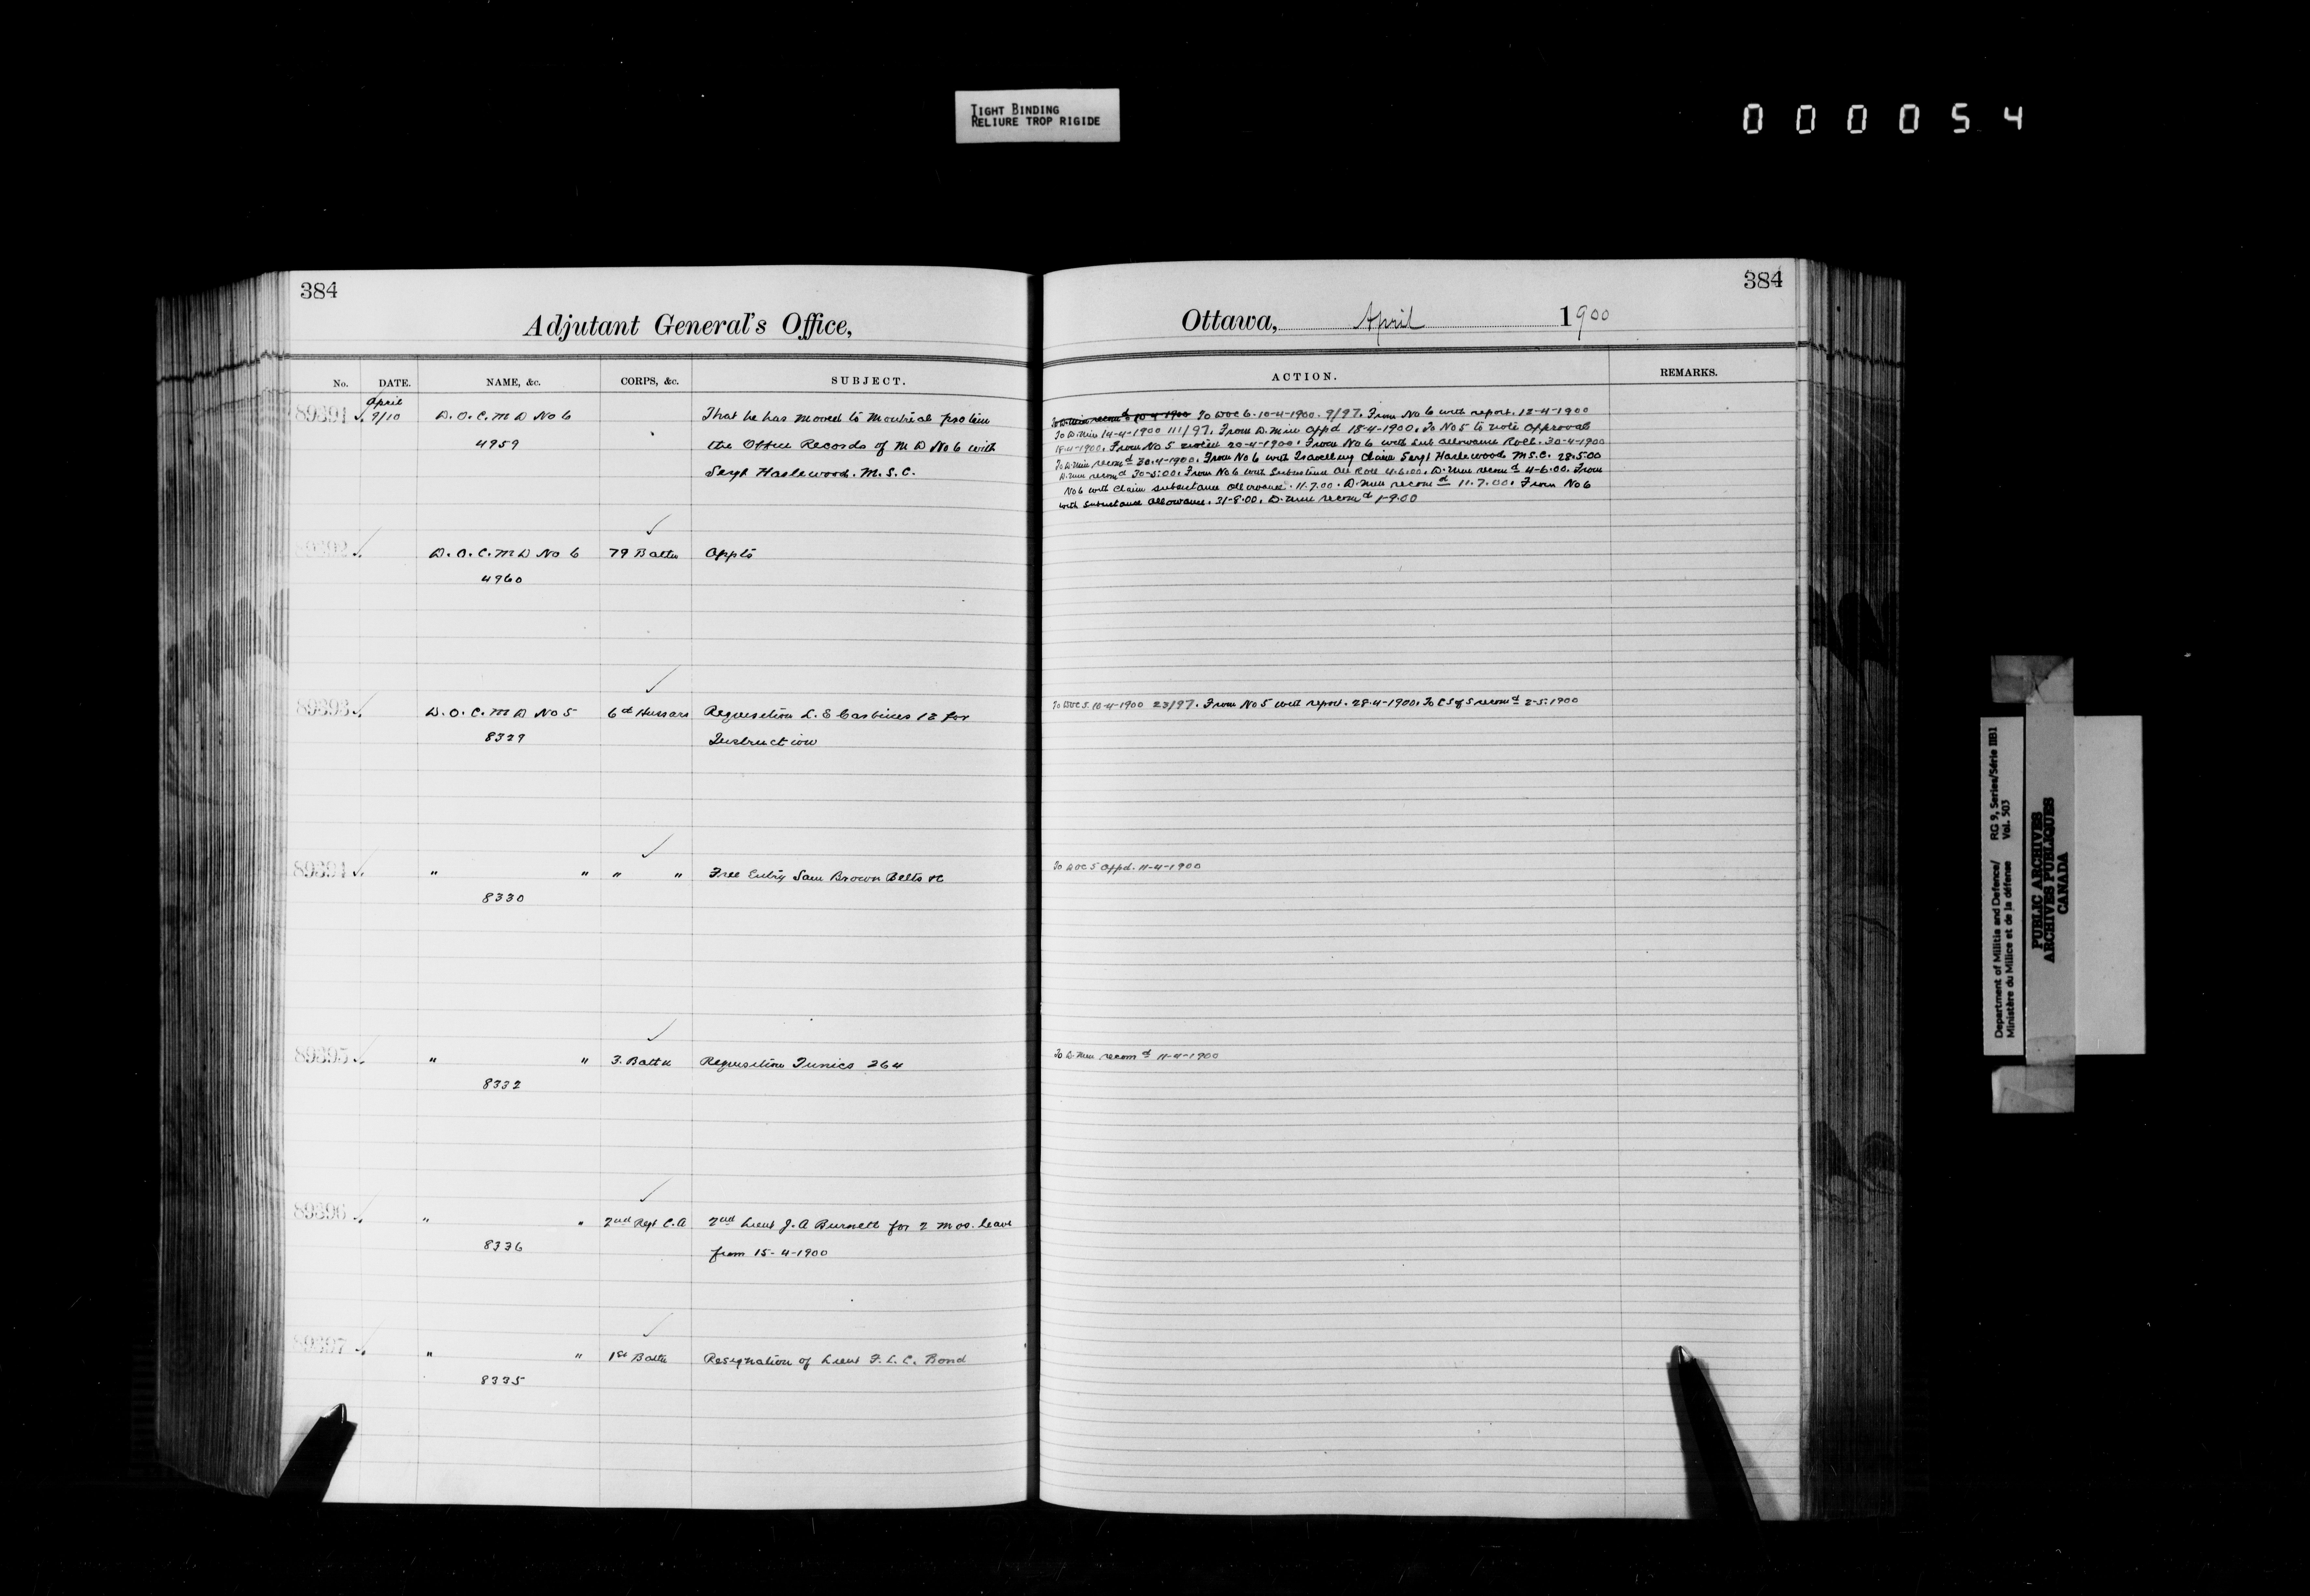 TIGHT BINDING
RELIURE TROP RIGIDE
000054
384
Adjutant General's Office,
No. DATE. NAME, &c. CORPS, &c. SUBJECT.
April
89391 9/10 D.O.C. M D No 6 That he has moved to Montreal pro tem
4959 the Office Records of M D No 6 with
Sergt Haslewood. M.S.C.
89392 D.O.C. M D No 6 79 Battn Appts
4960
89393 D.O.C. M D No 5 6th Hussars Requisition L.E Carbines 12 for
8329 Instruction
89394 " " " " Free Entry Sam Brown Belts &c
8330
89395 " " 3. Battn Requisition Tunics 264
8332
89396 " " 2nd Regt C.A 2nd Lieut J. A Burnett for 2 mos. leave
8336 from 15-4-1900
89397 " " 1st Battn Resignation of Lieut F. L. C. Bond
8335
384
Ottawa, April 1900
ACTION. REMARKS.
To D. Min recomd 10-4-1900 To DOC 6. 10-4-1900. 9/97. From No 6 with report. 12-4-1900
To D. Min 14-4-1900 111/97. From D. Min Appd 18-4-1900. To No 5 to note Approval
18-4-1900. From No 5 noted 20-4-1900. From No 6 with Sub Allowance Roll. 30-4-1900
To D. Min recomd 30.4-1900. From No 6 with Travelling Claim Sergt Haslewood M.S.C. 28.5.00
D. Min recomd 30-5.00. From No 6 with Subsistence All Roll 4.6.00. D. Min recomd 4-6.00. From
No 6 with Claim subsistance allowance. 11.7.00. D. Min recomd 11.7.00. From No 6
with Subsistance Allowance. 31-8.00. D. Min recomd 1-9.00
To DOC 5. 10-4-1900 23/97. From No 5 with report. 28-4-1900. To C S of S recomd 2-5.1900
To DOC 5 Appd. 11-4-1900
To D. Min recomd 11-4-1900
Department of Militia and Defence/ RG 9, Series/Série IIB1
Ministère du Milice et de la défense Vol. 503
PUBLIC ARCHIVES
ARCHIVES PUBLIQUES
CANADA